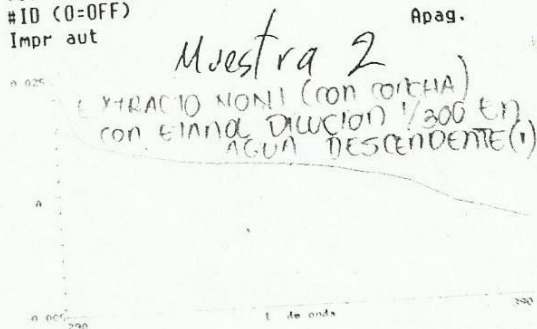 #ID (0=OFF) Apag.
Impr aut
Muestra 2
EXTRACTO NONI (CON CONCHA)
con ETANOL DILUCION 1/300 EN
AGUA DESCENDENTE (1)
0.025
A
0.005
290
l. de onda